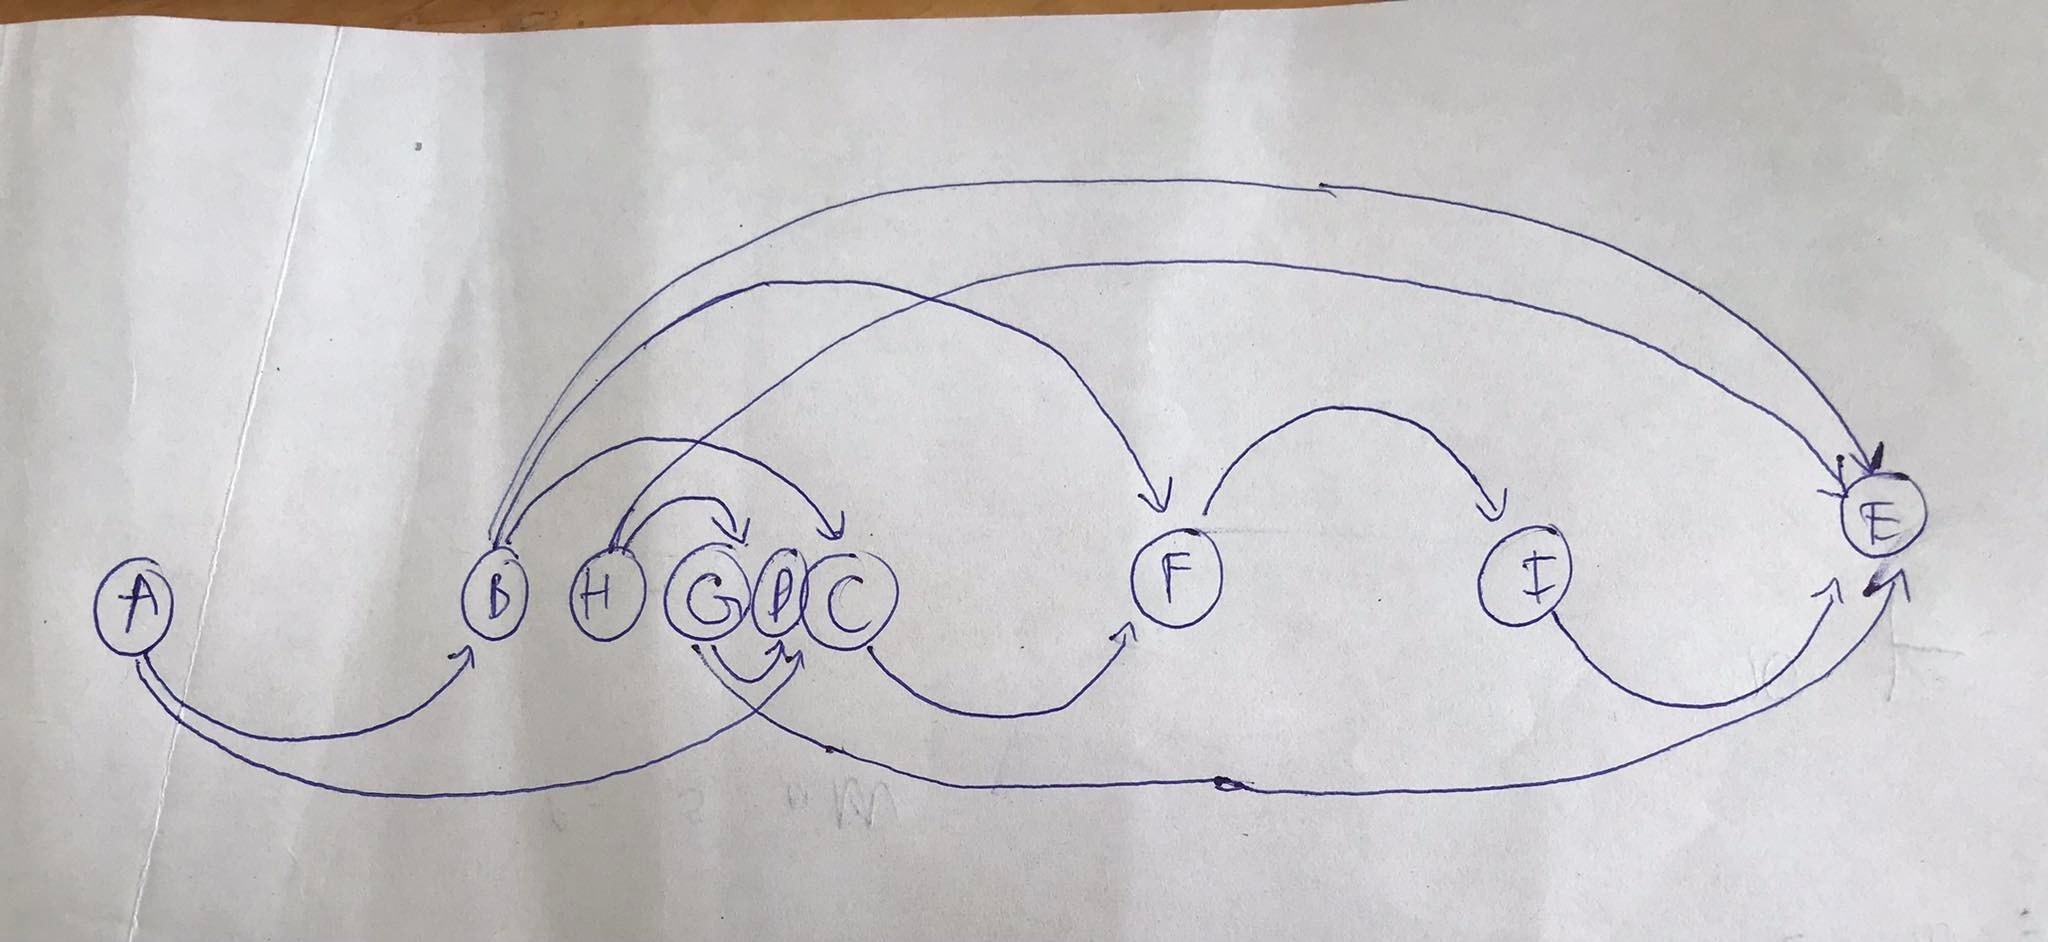 A B H G D C F I E